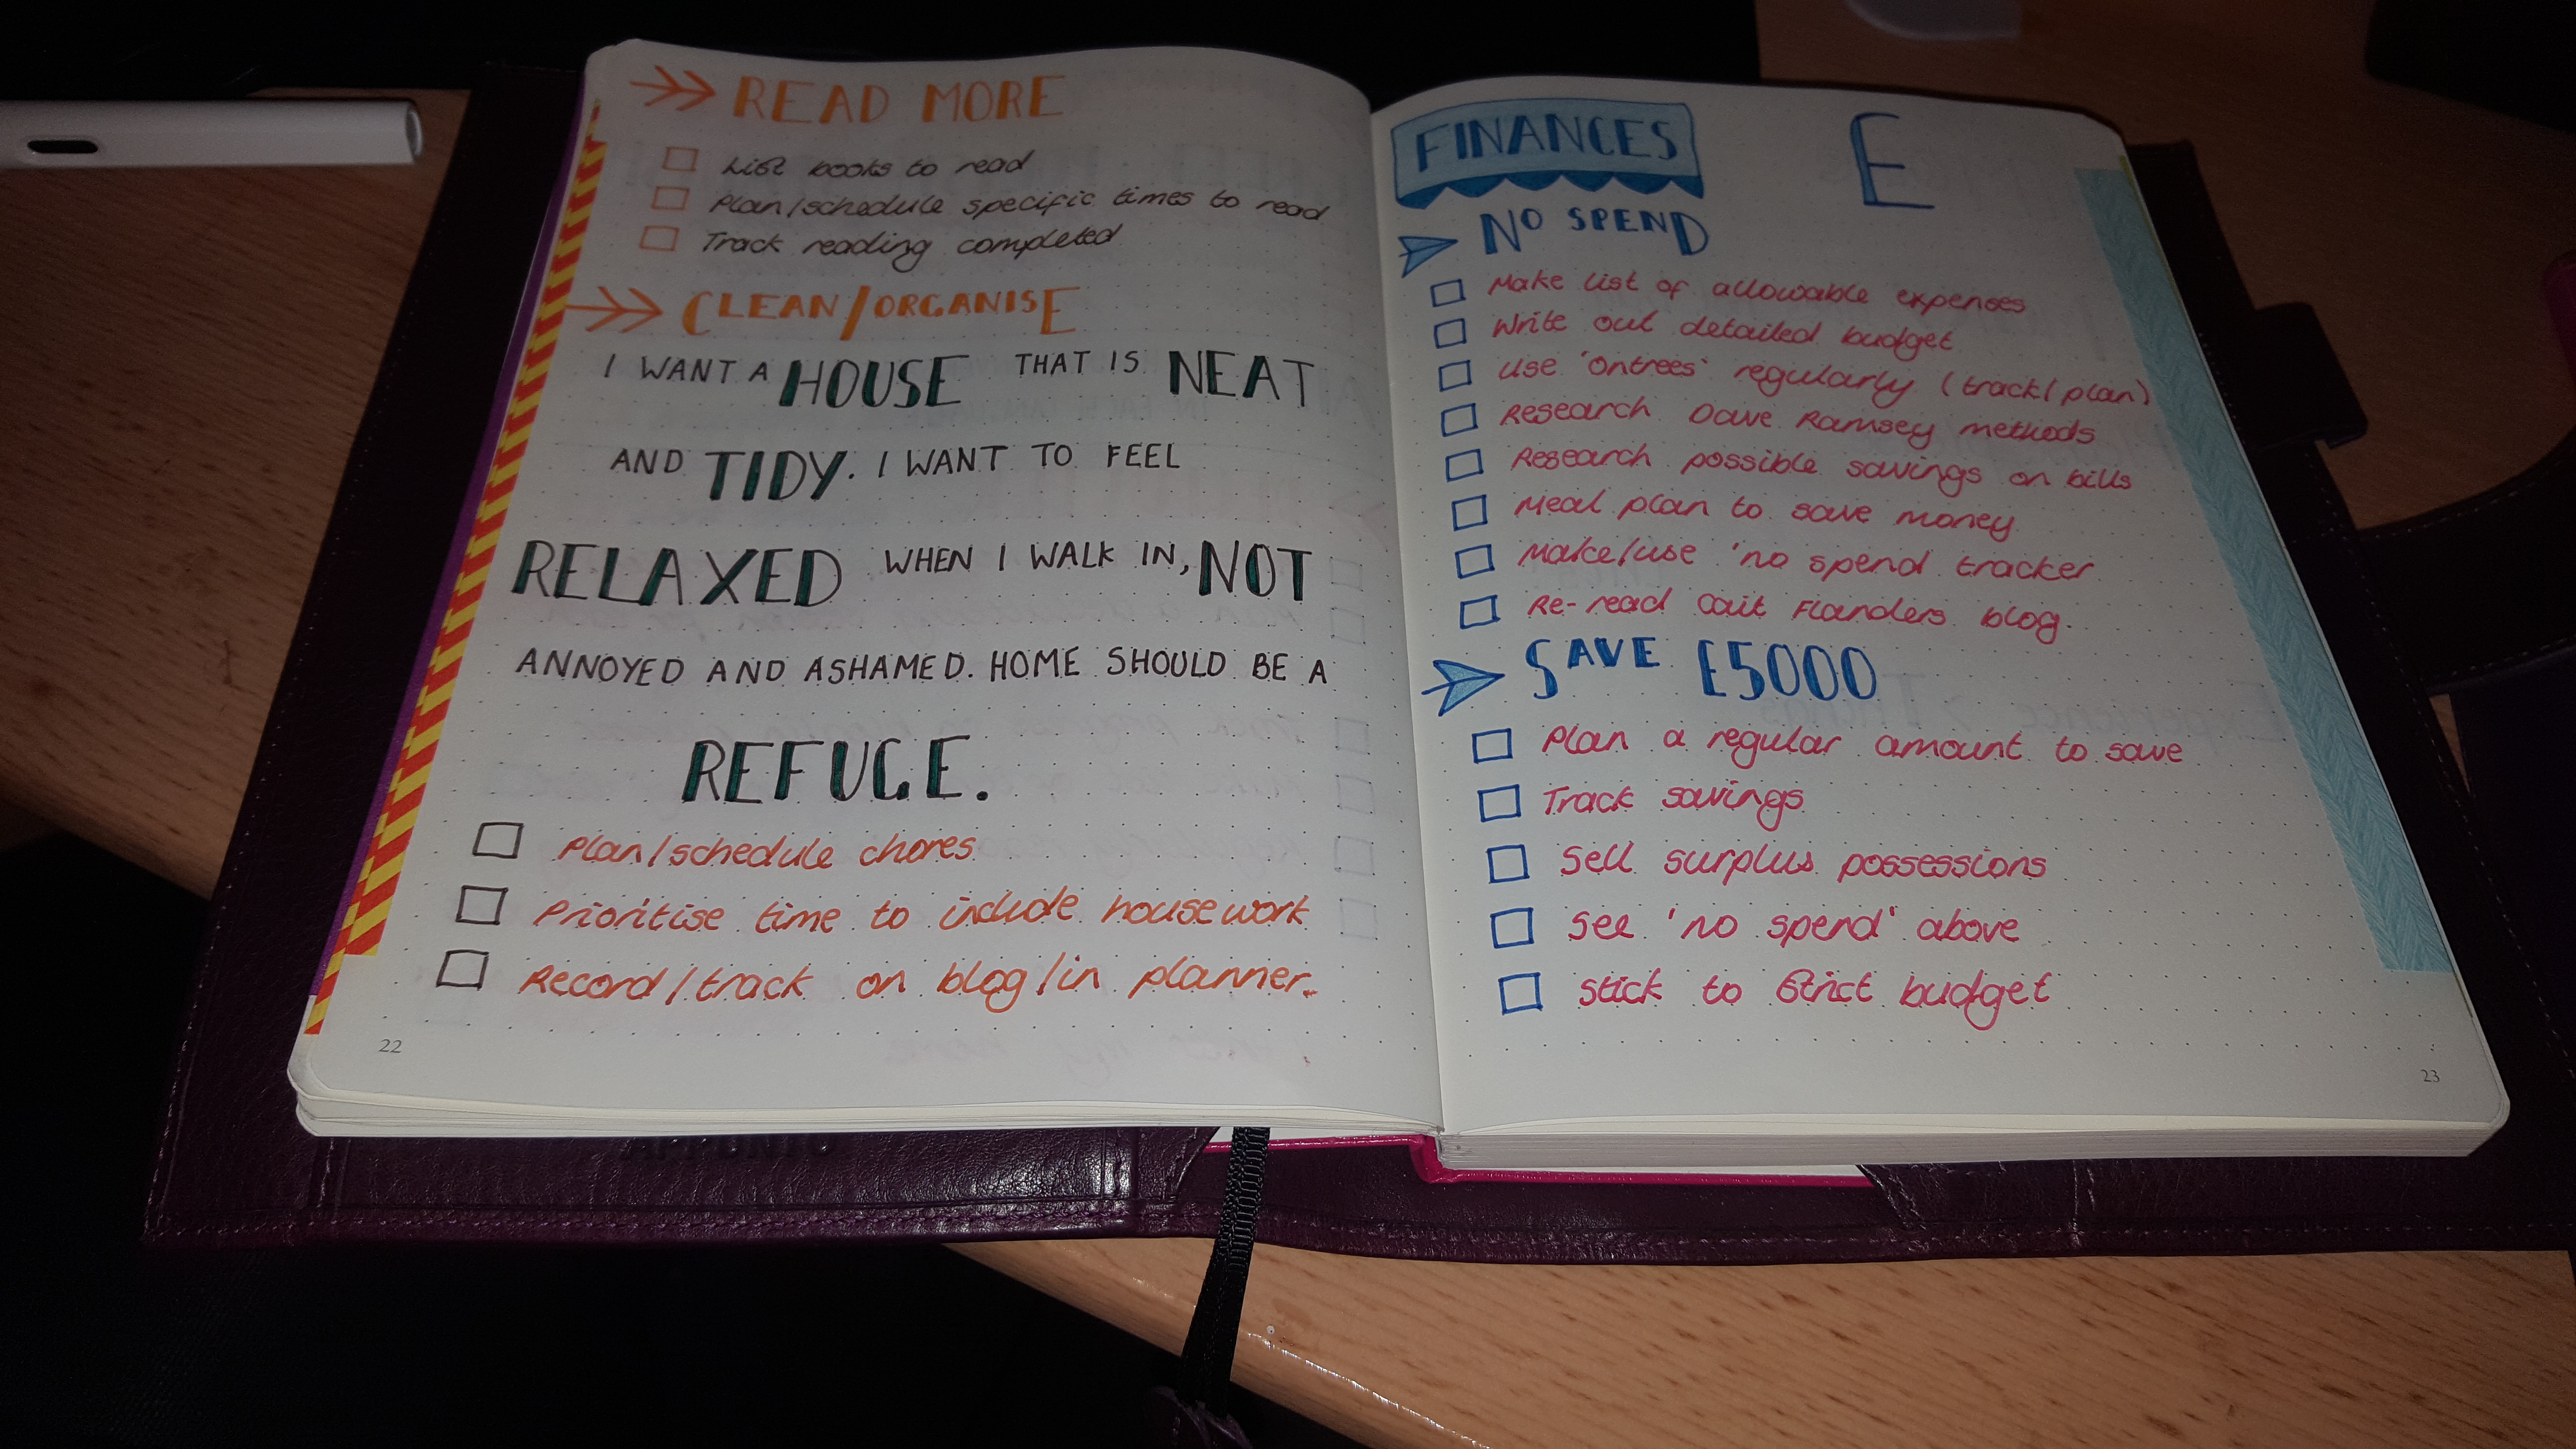 READ MORE
List books to read
Plan/schedule specific times to read
Track reading completed
CLEAN/ORGANISE
I WANT A HOUSE THAT IS NEAT
AND TIDY. I WANT TO FEEL
RELAXED WHEN I WALK IN, NOT
ANNOYED AND ASHAMED. HOME SHOULD BE A
REFUGE.
Plan/schedule chores
Prioritise time to include housework
Record/track on blog/in planner.
22
FINANCES
£
NO SPEND
Make list of allowable expenses
Write out detailed budget
Use 'Ontrees' regularly (track/plan)
Research Dave Ramsey methods
Research possible savings on bills
Meal plan to save money
Make/use 'no spend tracker
Re-read Cait Flanders blog.
SAVE £5000
Plan a regular amount to save
Track savings
Sell surplus possessions
See 'no spend' above
Stick to strict budget
23